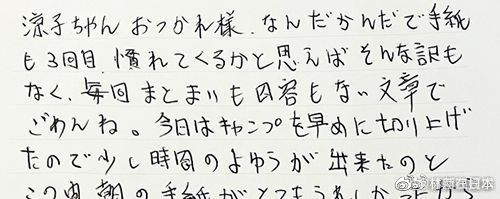 涼子ちゃん おつかれ様、なんだかんだで手紙
も3回目 慣れてくるかと思えばそんな訳も
なく、毎回 まとまりも内容もない文章で
ごめんね。今日はキャンプを早めに切り上げ
たので少し時間のよゆうが出来たのと
朝の手紙がとてもうれしかったから
@林萍在日本